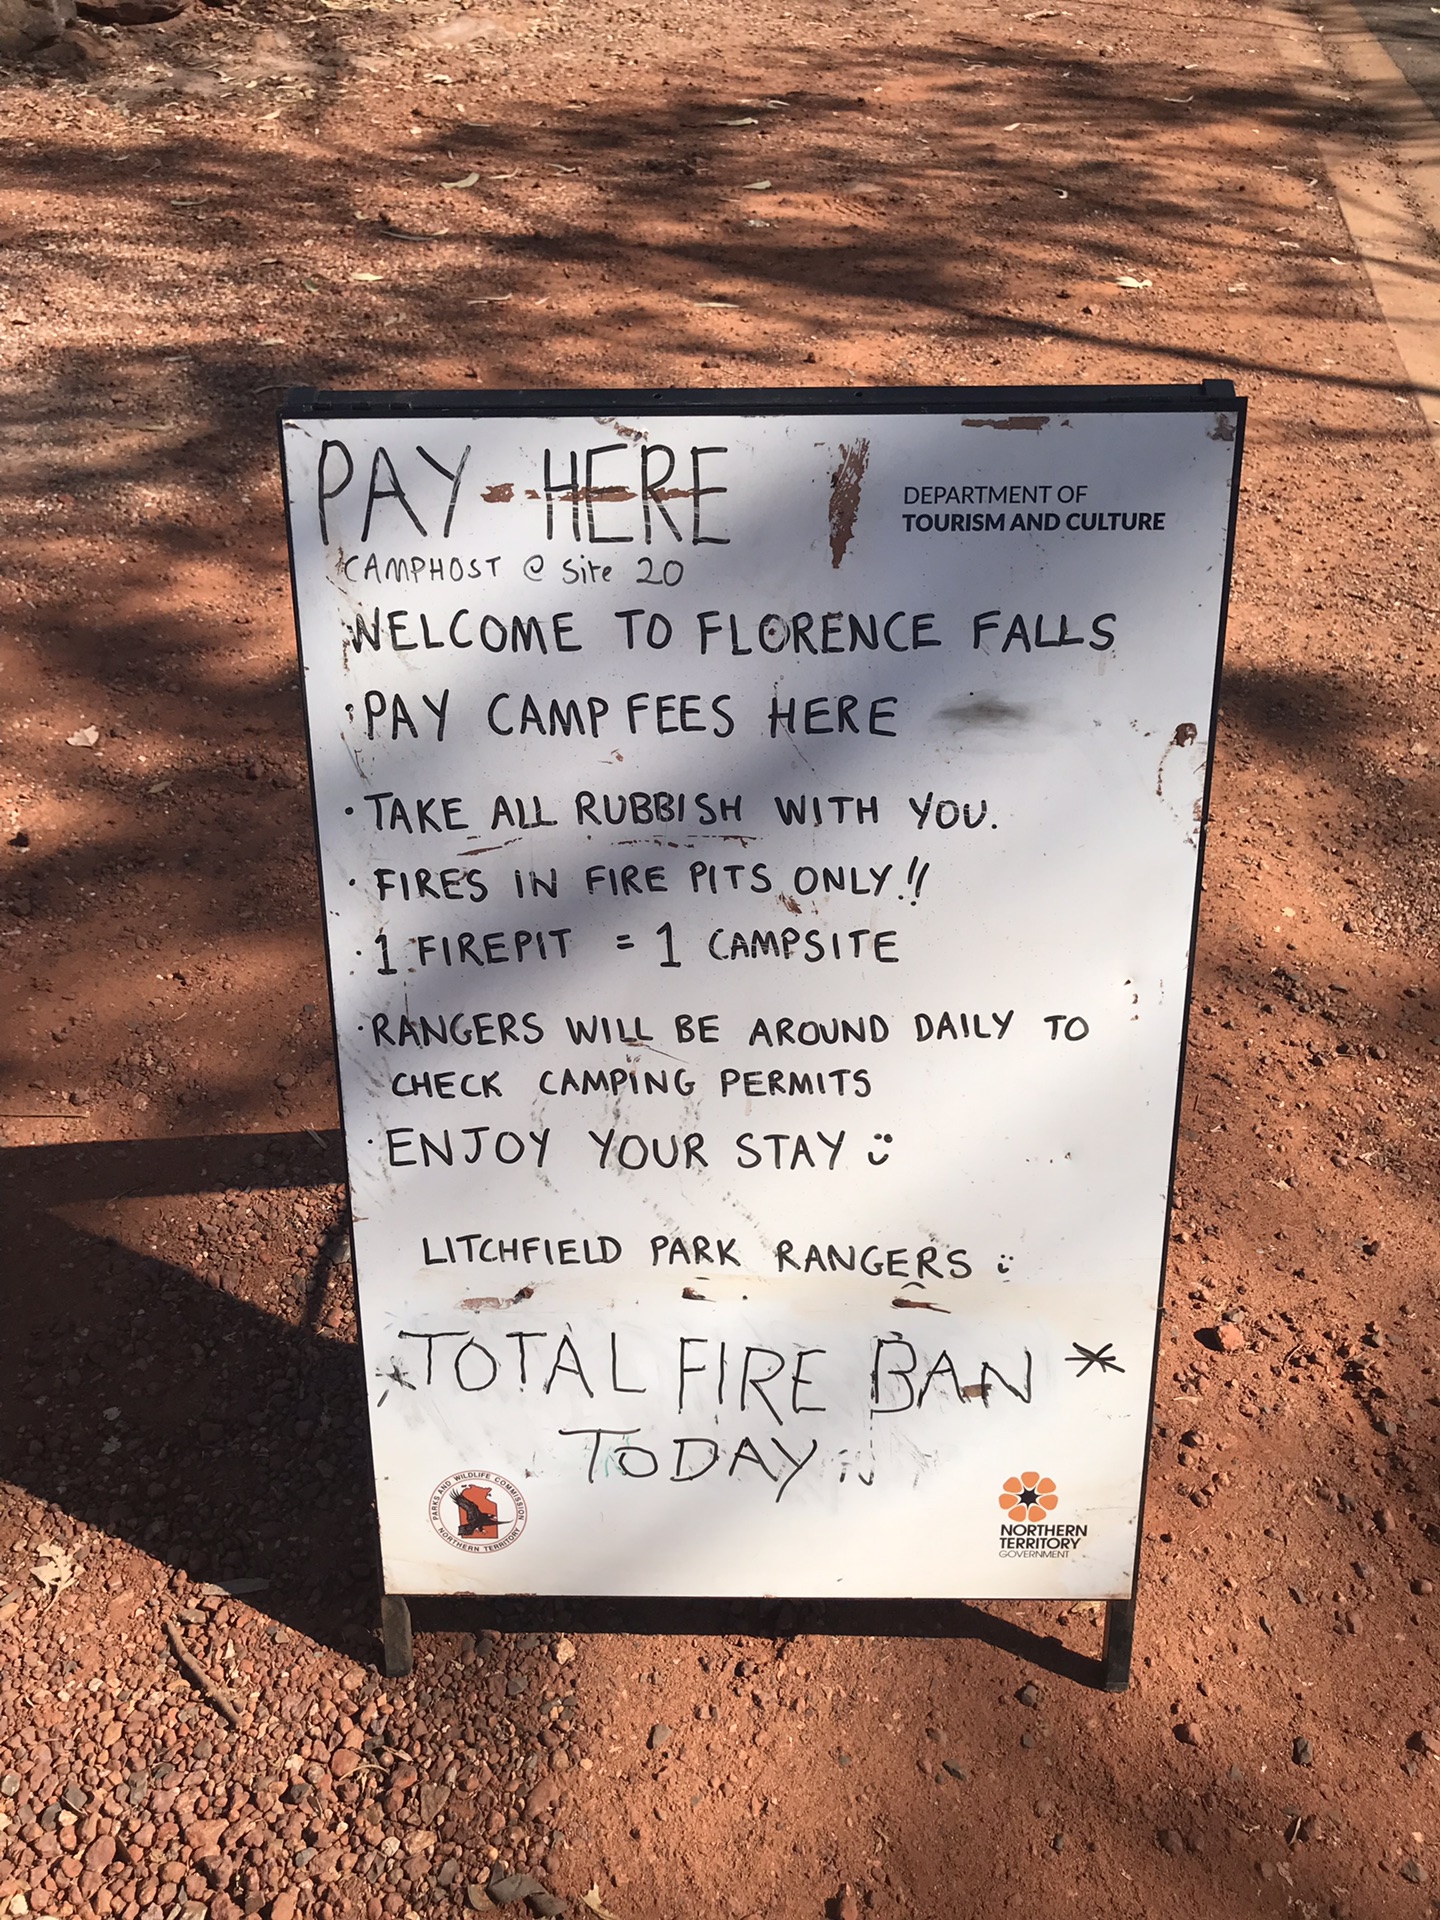 PAY HERE
DEPARTMENT OF
TOURISM AND CULTURE
CAMPHOST @ Site 20
WELCOME TO FLORENCE FALLS
• PAY CAMP FEES HERE
• TAKE ALL RUBBISH WITH YOU.
• FIRES IN FIRE PITS ONLY!!
• 1 FIREPIT = 1 CAMPSITE
• RANGERS WILL BE AROUND DAILY TO
CHECK CAMPING PERMITS
• ENJOY YOUR STAY :)
LITCHFIELD PARK RANGERS :)
* TOTAL FIRE BAN *
TODAY
PARKS AND WILDLIFE COMMISSION
NORTHERN TERRITORY
NORTHERN
TERRITORY
GOVERNMENT